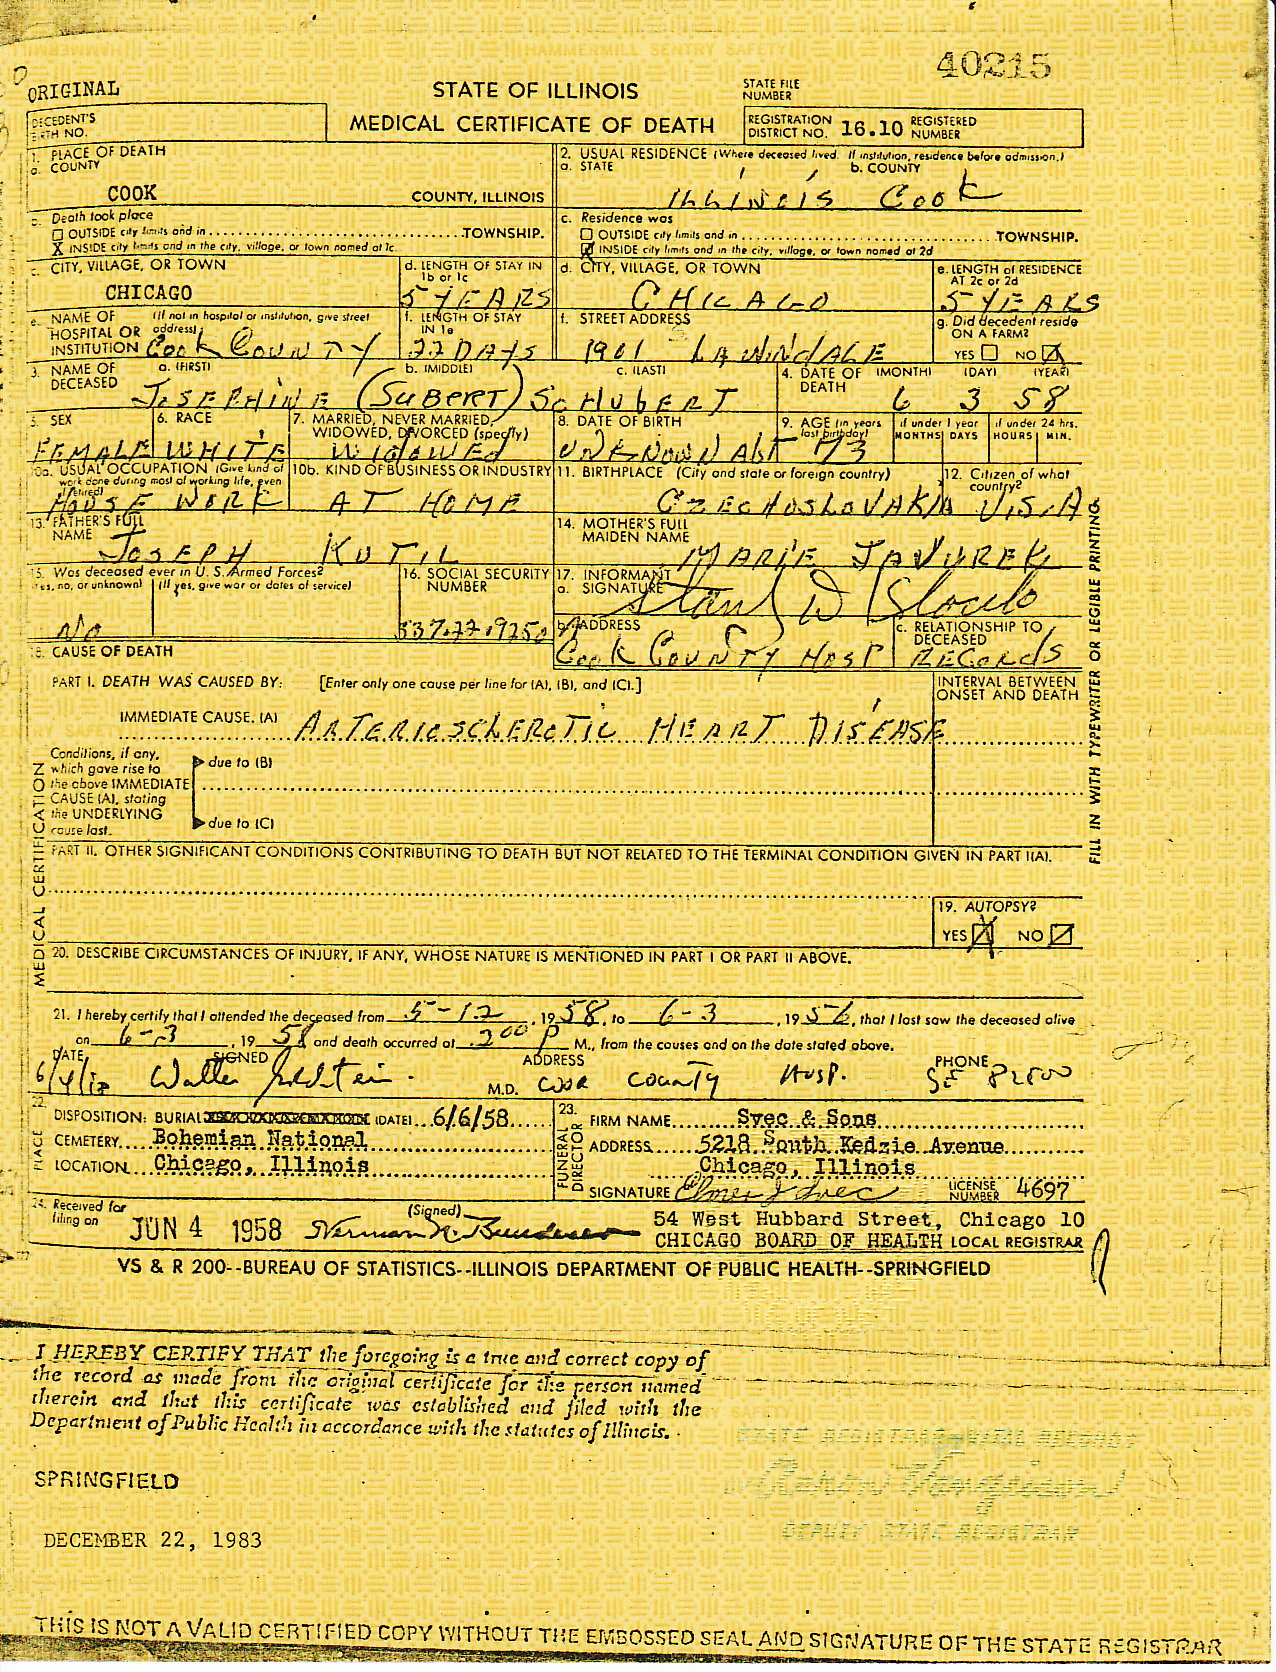 40215
ORIGINAL
STATE OF ILLINOIS
STATE FILE NUMBER
DECEDENT'S BIRTH NO.
MEDICAL CERTIFICATE OF DEATH
REGISTRATION DISTRICT NO. 16.10 REGISTERED NUMBER
1. PLACE OF DEATH
a. COUNTY
COOK COUNTY, ILLINOIS
2. USUAL RESIDENCE (Where deceased lived. If institution, residence before admission.)
a. STATE b. COUNTY
ILLINOIS COOK
Death took place
OUTSIDE city limits and in TOWNSHIP.
X INSIDE city limits and in the city, village, or town named at 1c.
c. Residence was
OUTSIDE city limits and in TOWNSHIP.
INSIDE city limits and in the city, village, or town named at 2d
c. CITY, VILLAGE, OR TOWN
CHICAGO
d. LENGTH OF STAY IN 1b or 1c
5 YEARS
d. CITY, VILLAGE, OR TOWN
CHICAGO
e. LENGTH of RESIDENCE AT 2c or 2d
5 YEARS
e. NAME OF HOSPITAL OR INSTITUTION (If not in hospital or institution, give street address)
COOK COUNTY
f. LENGTH OF STAY IN 1e
22 DAYS
f. STREET ADDRESS
1901 LAWNDALE
g. Did decedent reside ON A FARM?
YES NO X
3. NAME OF DECEASED a. (FIRST) b. (MIDDLE) c. (LAST)
JOSEPHINE (SUBERT) SCHUBERT
4. DATE OF DEATH (MONTH) (DAY) (YEAR)
6 3 58
5. SEX
FEMALE
6. RACE
WHITE
7. MARRIED, NEVER MARRIED, WIDOWED, DIVORCED (specify)
WIDOWED
8. DATE OF BIRTH
UNKNOWN ABT
9. AGE (in years last birthday)
73
if under 1 year MONTHS DAYS
if under 24 hrs. HOURS MIN.
10a. USUAL OCCUPATION (Give kind of work done during most of working life, even if retired)
HOUSE WORK
10b. KIND OF BUSINESS OR INDUSTRY
AT HOME
11. BIRTHPLACE (City and state or foreign country)
CZECHOSLOVAKIA
12. Citizen of what country?
U.S.A
13. FATHER'S FULL NAME
JOSEPH KUTIL
14. MOTHER'S FULL MAIDEN NAME
MARIE JAVUREK
15. Was deceased ever in U. S. Armed Forces?
(Yes, no, or unknown) (If yes, give war or dates of service)
NO
16. SOCIAL SECURITY NUMBER
17. INFORMANT
a. SIGNATURE
b. ADDRESS
COOK COUNTY HOSP
c. RELATIONSHIP TO DECEASED
RECORDS
18. CAUSE OF DEATH
PART I. DEATH WAS CAUSED BY: [Enter only one cause per line for (A), (B), and (C).]
INTERVAL BETWEEN ONSET AND DEATH
IMMEDIATE CAUSE. (A) ARTERIOSCLEROTIC HEART DISEASE
Conditions, if any, which gave rise to the above IMMEDIATE CAUSE (A), stating the UNDERLYING cause last.
due to (B)
due to (C)
PART II. OTHER SIGNIFICANT CONDITIONS CONTRIBUTING TO DEATH BUT NOT RELATED TO THE TERMINAL CONDITION GIVEN IN PART I(A).
19. AUTOPSY?
YES NO
20. DESCRIBE CIRCUMSTANCES OF INJURY, IF ANY, WHOSE NATURE IS MENTIONED IN PART I OR PART II ABOVE.
MEDICAL CERTIFICATION
FILL IN WITH TYPEWRITER OR LEGIBLE PRINTING.
21. I hereby certify that I attended the deceased from 5-12, 1958, to 6-3, 19, that I last saw the deceased alive
on 6-3, 1958 and death occurred at 2 00 P M., from the causes and on the date stated above.
DATE SIGNED ADDRESS PHONE
Walter Goldstein. M.D. COOK COUNTY HOSP.
22. PLACE
DISPOSITION: BURIAL (DATE) 6/6/58
CEMETERY Bohemian National
LOCATION Chicago, Illinois
23. FUNERAL DIRECTOR
FIRM NAME Svec & Sons
ADDRESS 5218 South Kedzie Avenue
Chicago, Illinois
SIGNATURE Elmer J Svec LICENSE NUMBER 4697
24. Received for filing on JUN 4 1958 (Signed) Herman N. Bundesen
54 West Hubbard Street, Chicago 10
CHICAGO BOARD OF HEALTH LOCAL REGISTRAR
VS & R 200--BUREAU OF STATISTICS--ILLINOIS DEPARTMENT OF PUBLIC HEALTH--SPRINGFIELD
I HEREBY CERTIFY THAT the foregoing is a true and correct copy of
the record as made from the original certificate for the person named
therein and that this certificate was established and filed with the
Department of Public Health in accordance with the statutes of Illinois.
STATE REGISTRAR VITAL RECORDS
DEPUTY STATE REGISTRAR
SPRINGFIELD
DECEMBER 22, 1983
THIS IS NOT A VALID CERTIFIED COPY WITHOUT THE EMBOSSED SEAL AND SIGNATURE OF THE STATE REGISTRAR